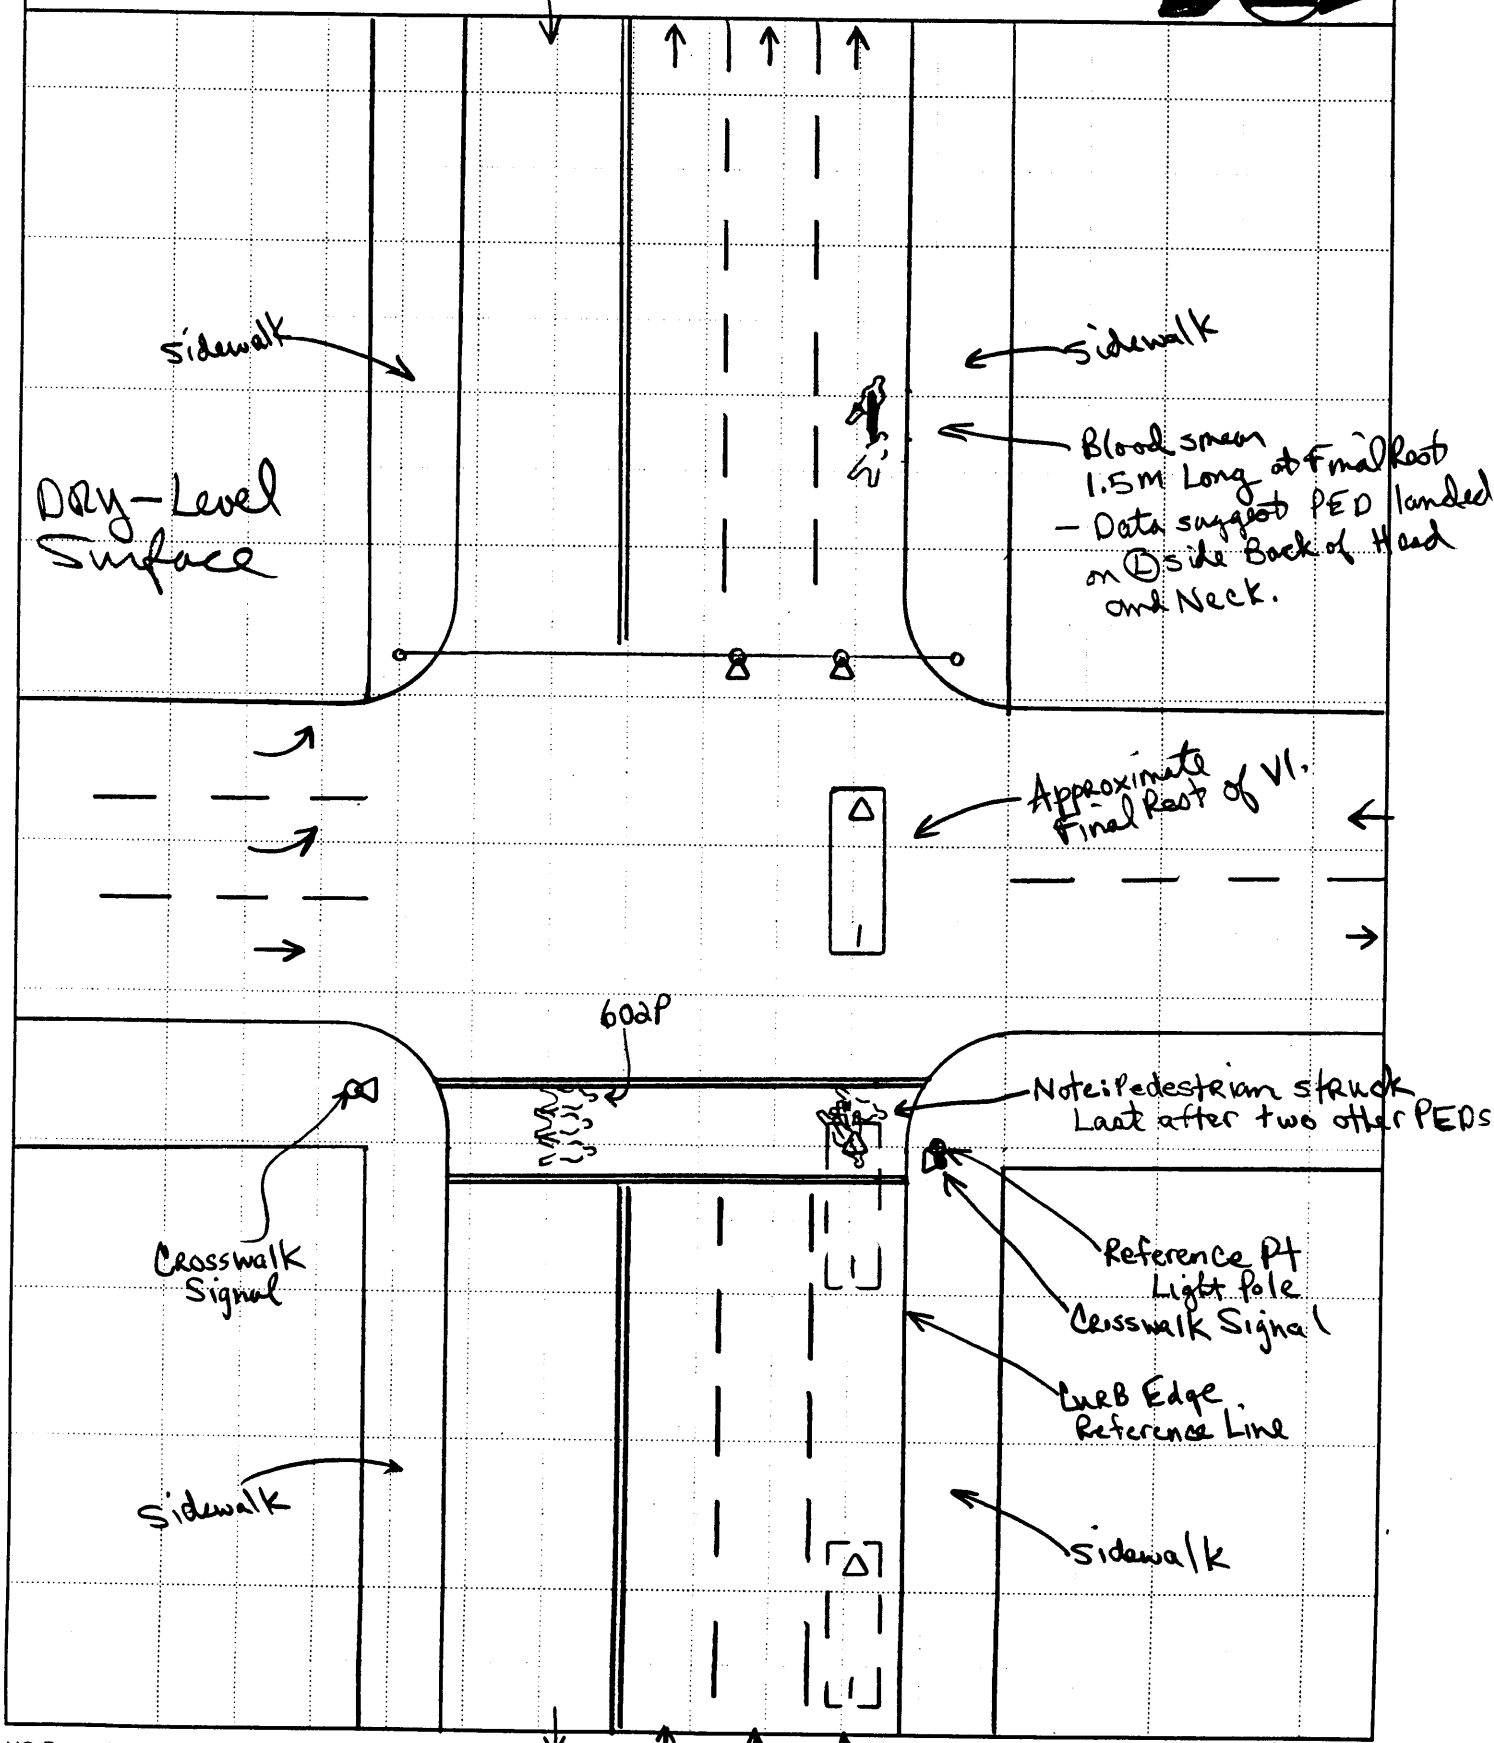 sidewalk
sidewalk
Blood smear
1.5m Long at Final Rest
- Data suggest PED landed
on Ⓛ side Back of Head
and Neck.
DRy-Level
Surface
Approximate
Final Rest of V1.
602P
Note: Pedestrian struck
Last after two other PEDs
Crosswalk
Signal
Reference Pt
Light Pole
Crosswalk Signal
CURB Edge
Reference Line
sidewalk
sidewalk
1
1
1